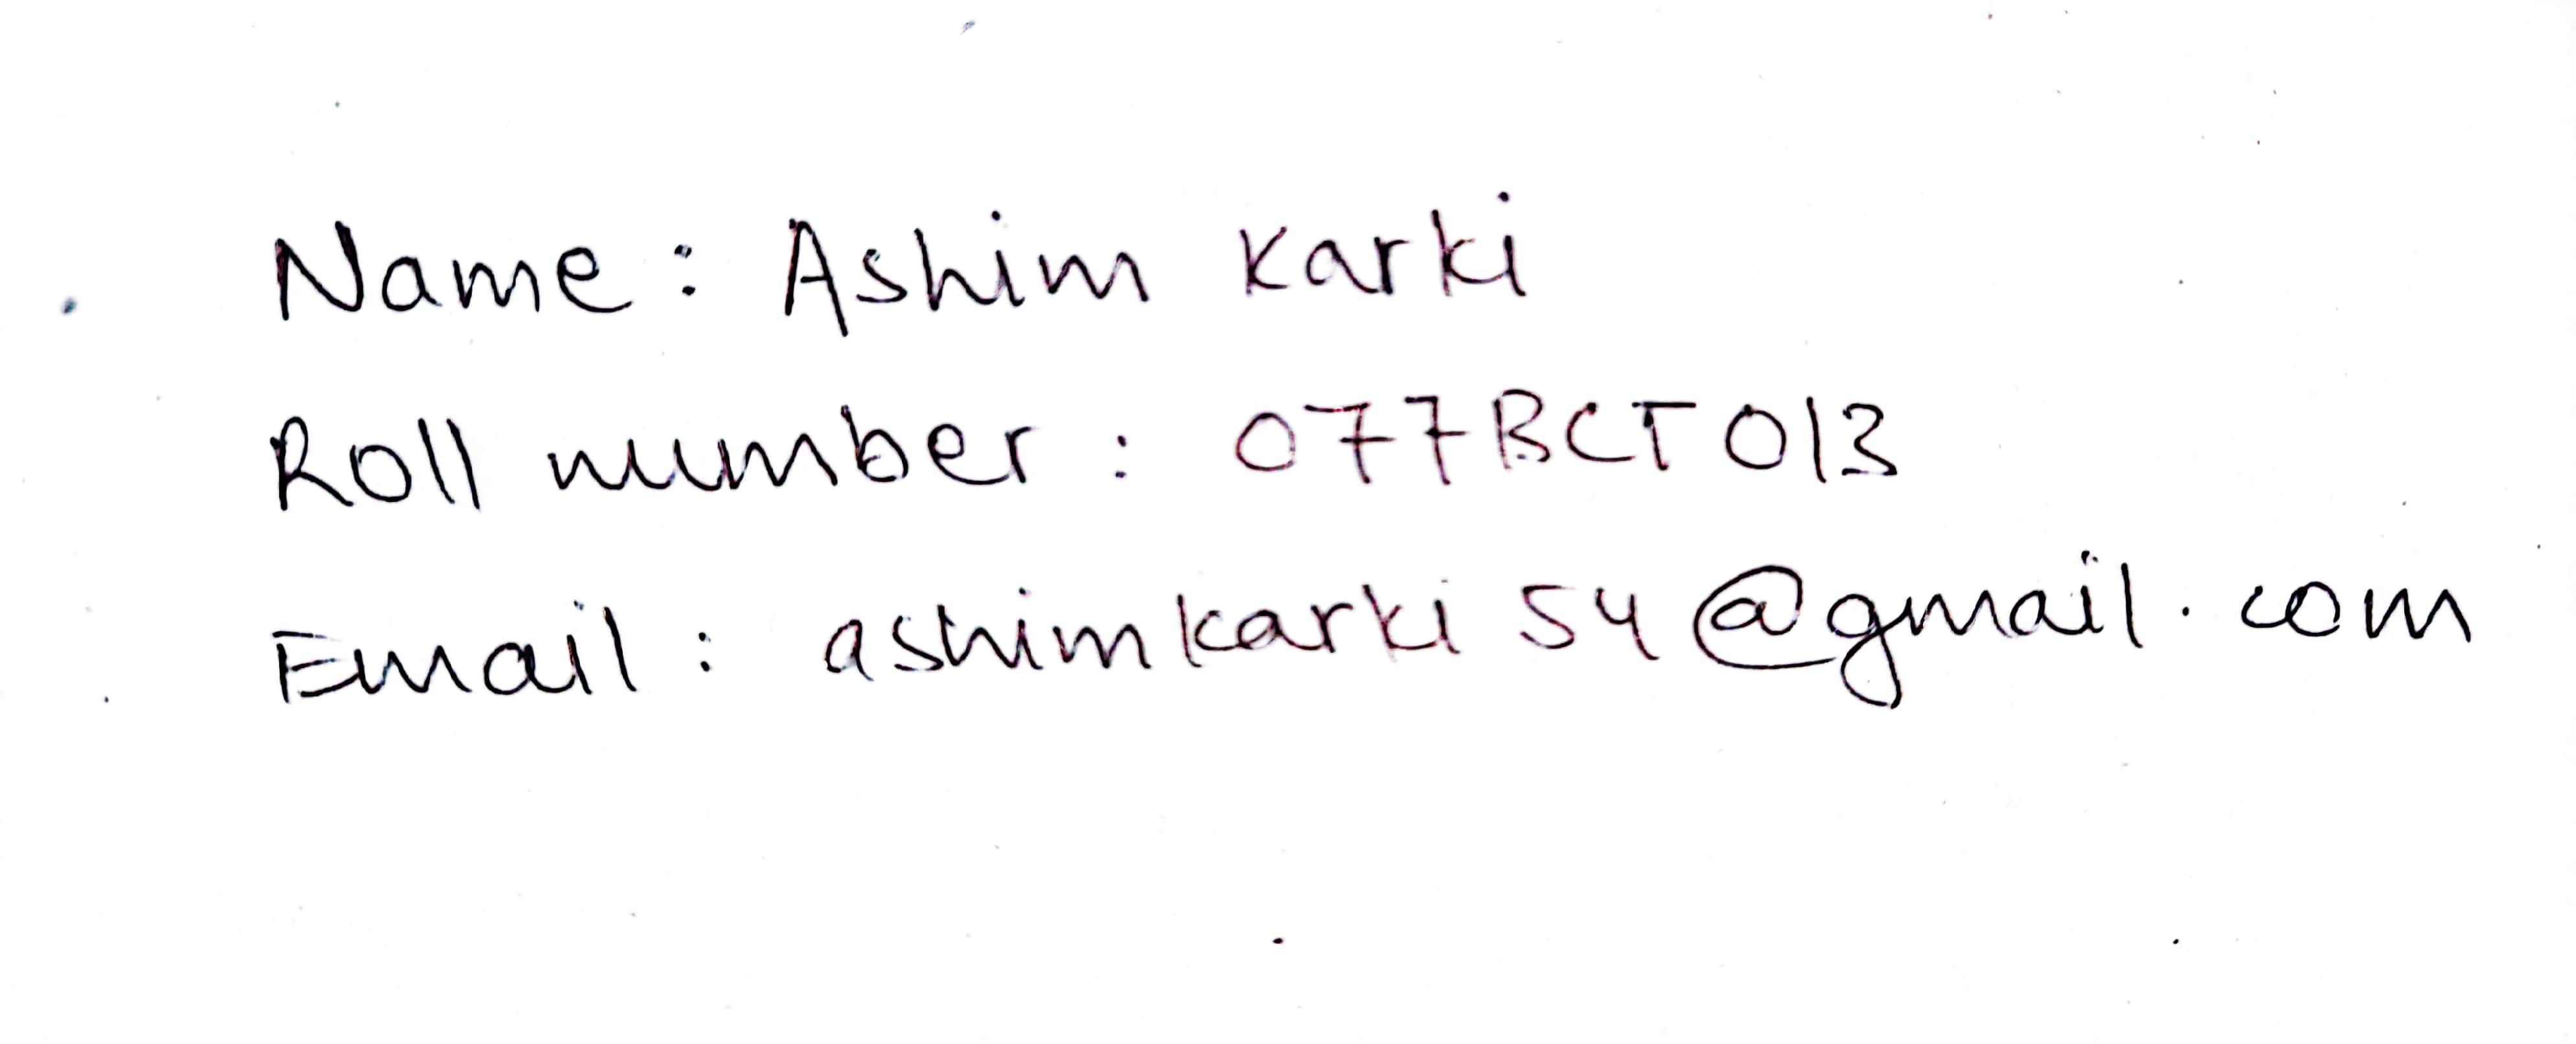 Name: Ashim Karki
Roll number: 077BCT013
Email: ashimkarki54@gmail.com